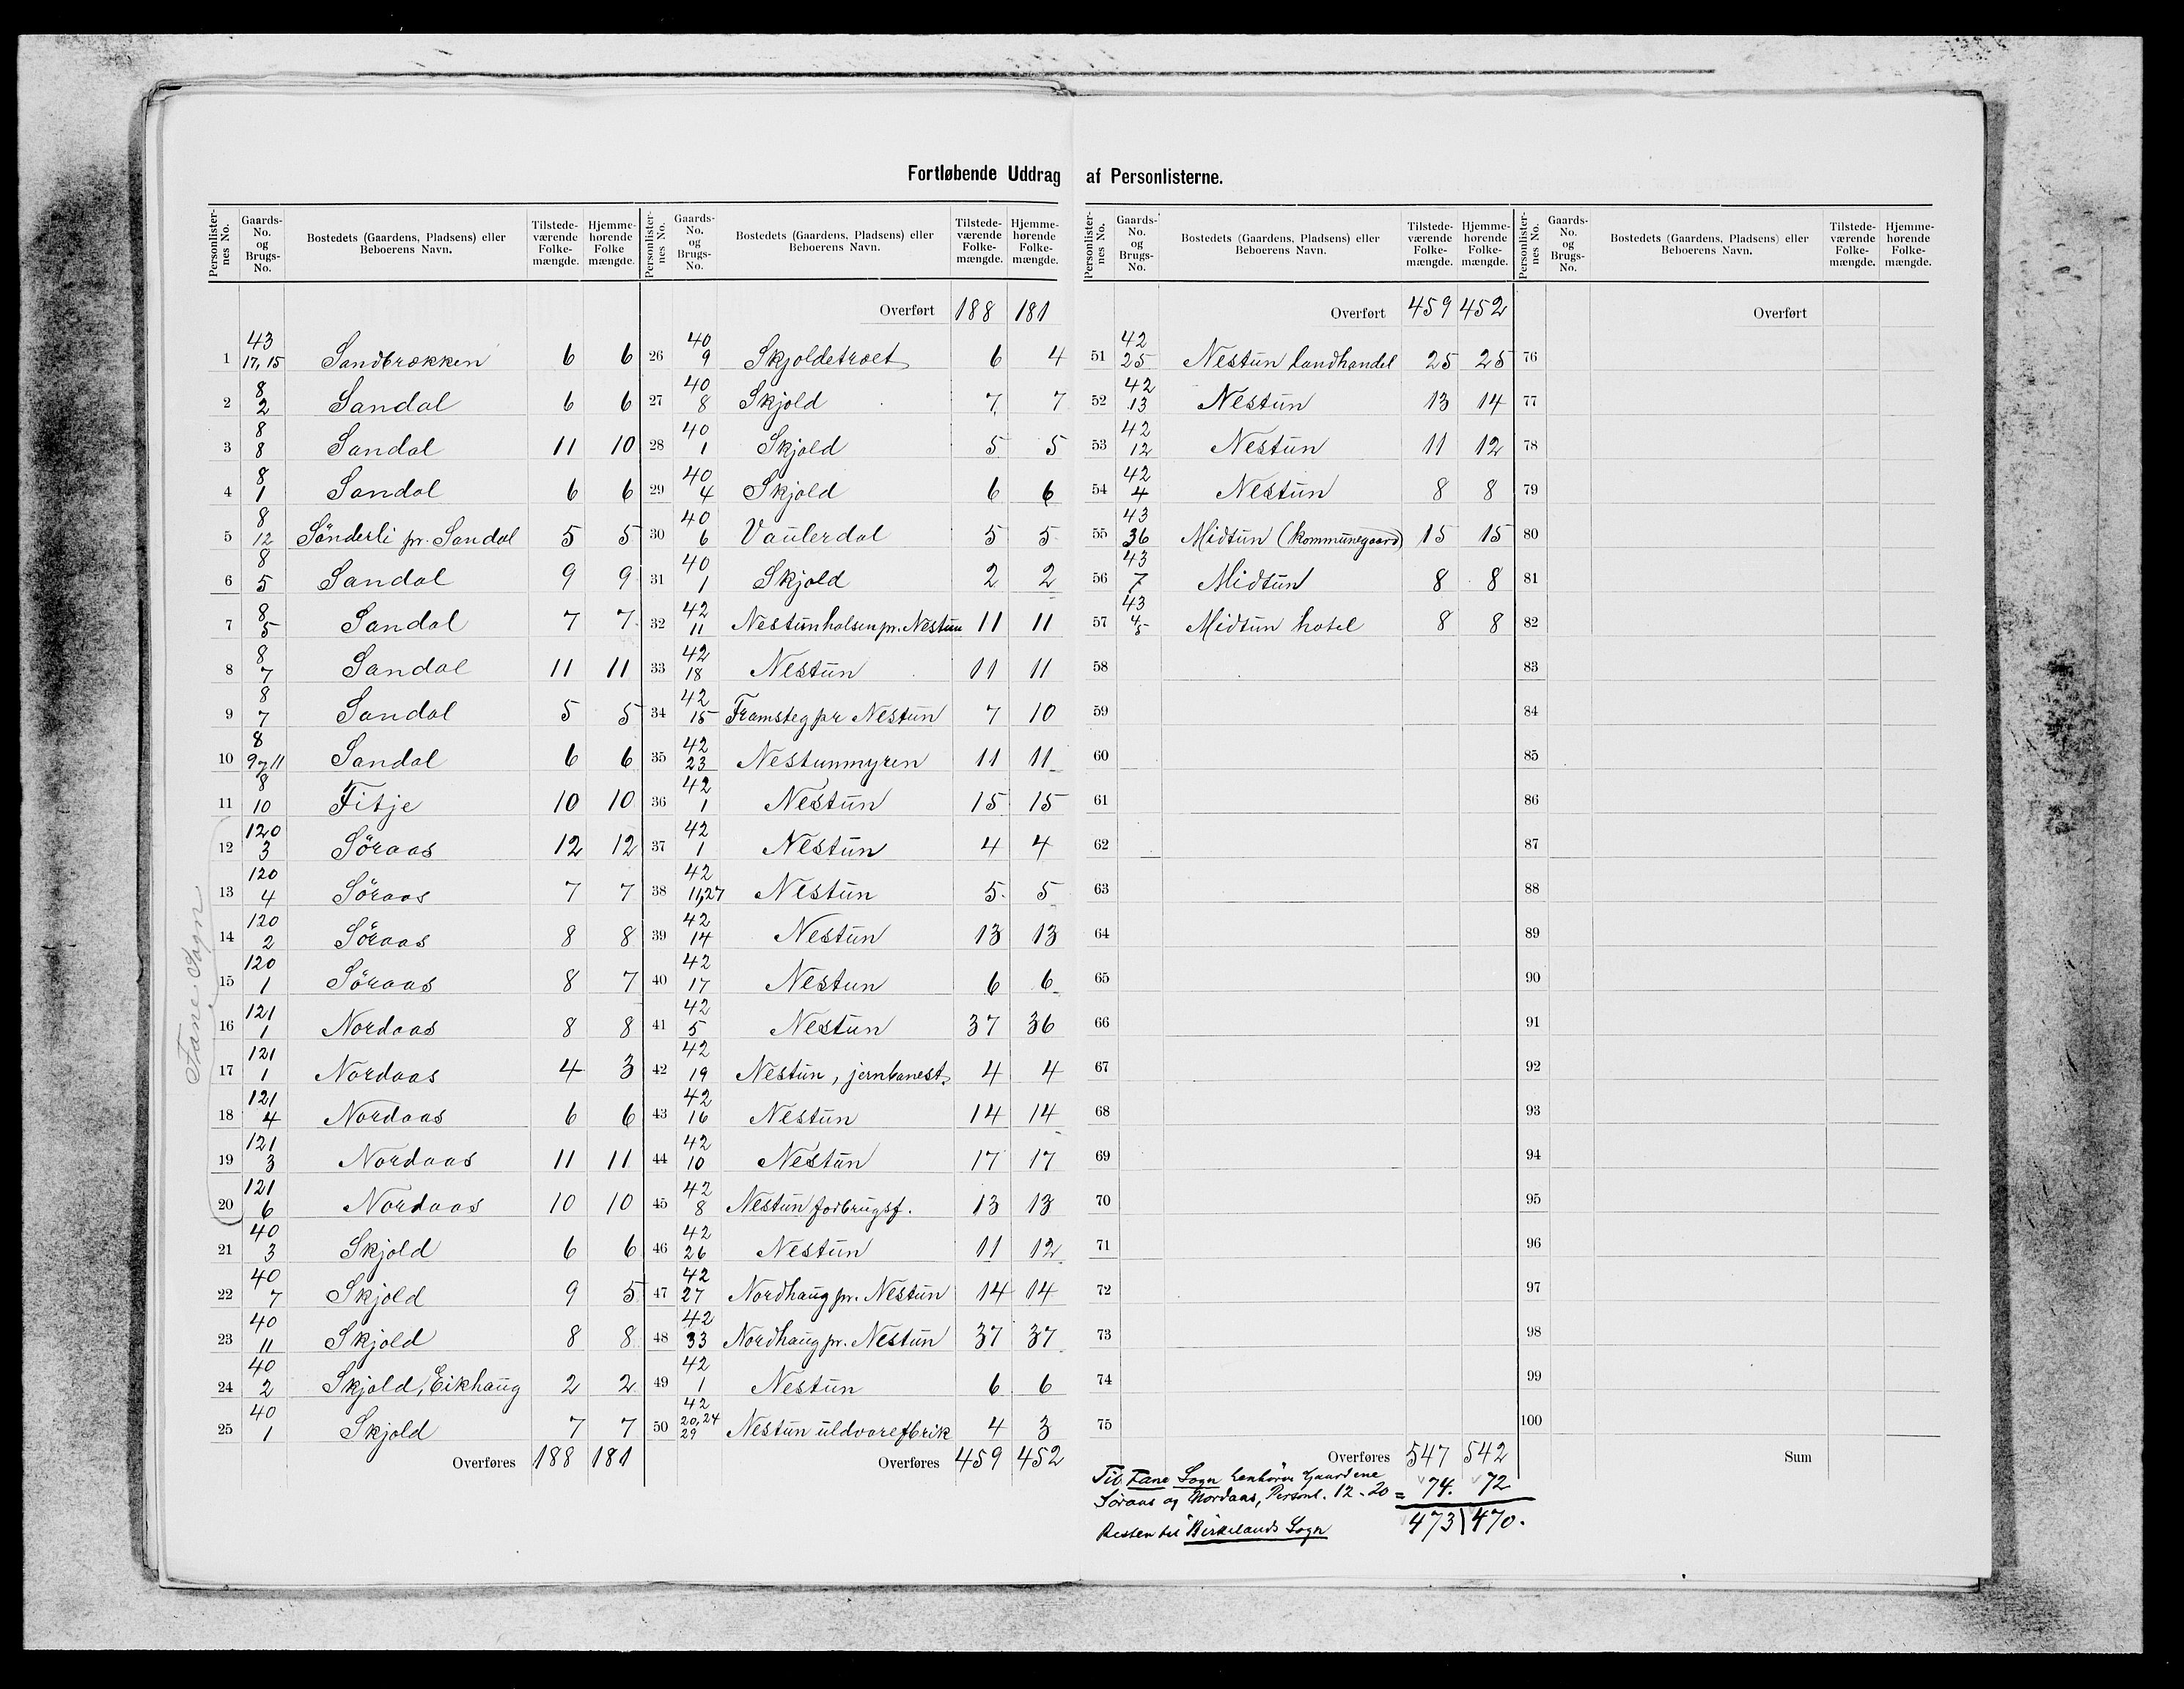 Fortløbende Uddrag af Personlisterne.
Personlisternes No. | Gaards-No. og Brugs-No. | Bostedets (Gaardens, Pladsens) eller Beboerens Navn. | Tilstedeværende Folkemængde. | Hjemmehørende Folkemængde.
1 | 43 17,15 | Sandbrækken | 6 | 6
2 | 8 2 | Sandal | 6 | 6
3 | 8 8 | Sandal | 11 | 10
4 | 8 1 | Sandal | 6 | 6
5 | 8 12 | Sönderli pr. Sandal | 5 | 5
6 | 8 5 | Sandal | 9 | 9
7 | 8 5 | Sandal | 7 | 7
8 | 8 7 | Sandal | 11 | 11
9 | 8 7 | Sandal | 5 | 5
10 | 8 9 7 11 | Sandal | 6 | 6
11 | 8 10 | Fitje | 10 | 10
Fane Sogn
12 | 120 3 | Söraas | 12 | 12
13 | 120 4 | Söraas | 7 | 7
14 | 120 2 | Söraas | 8 | 8
15 | 120 1 | Söraas | 8 | 7
16 | 121 1 | Nordaas | 8 | 8
17 | 121 1 | Nordaas | 4 | 3
18 | 121 4 | Nordaas | 6 | 6
19 | 121 3 | Nordaas | 11 | 11
20 | 121 6 | Nordaas | 10 | 10
21 | 40 3 | Skjold | 6 | 6
22 | 40 7 | Skjold | 9 | 5
23 | 40 11 | Skjold | 8 | 8
24 | 40 2 | Skjold, Eikhaug | 2 | 2
25 | 40 1 | Skjold | 7 | 7
Overføres | 188 | 181
Personlisternes No. | Gaards-No. og Brugs-No. | Bostedets (Gaardens, Pladsens) eller Beboerens Navn. | Tilstedeværende Folkemængde. | Hjemmehørende Folkemængde.
Overført | 188 | 181
26 | 40 9 | Skjoldetræet | 6 | 4
27 | 40 8 | Skjold | 7 | 7
28 | 40 1 | Skjold | 5 | 5
29 | 40 4 | Skjold | 6 | 6
30 | 40 6 | Vaulerdal | 5 | 5
31 | 40 1 | Skjold | 2 | 2
32 | 42 11 | Nestunholsen pr. Nestun | 11 | 11
33 | 42 18 | Nestun | 11 | 11
34 | 42 15 | Framsteg pr Nestun | 7 | 10
35 | 42 23 | Nestunmyren | 11 | 11
36 | 42 1 | Nestun | 15 | 15
37 | 42 1 | Nestun | 4 | 4
38 | 42 11,27 | Nestun | 5 | 5
39 | 42 14 | Nestun | 13 | 13
40 | 42 17 | Nestun | 6 | 6
41 | 42 5 | Nestun | 37 | 36
42 | 42 19 | Nestun, jernbanest. | 4 | 4
43 | 42 16 | Nestun | 14 | 14
44 | 42 10 | Nestun | 17 | 17
45 | 42 8 | Nestun forbrugsf. | 13 | 13
46 | 42 26 | Nestun | 11 | 12
47 | 42 27 | Nordhaug pr. Nestun | 14 | 14
48 | 42 33 | Nordhaug pr. Nestun | 37 | 37
49 | 42 1 | Nestun | 6 | 6
50 | 42 20,24 29 | Nestun uldvarefbrik | 4 | 3
Overføres | 459 | 452
Personlisternes No. | Gaards-No. og Brugs-No. | Bostedets (Gaardens, Pladsens) eller Beboerens Navn. | Tilstedeværende Folkemængde. | Hjemmehørende Folkemængde.
Overført | 459 | 452
51 | 42 25 | Nestun landhandel | 25 | 25
52 | 42 13 | Nestun | 13 | 14
53 | 42 12 | Nestun | 11 | 12
54 | 42 4 | Nestun | 8 | 8
55 | 43 36 | Midtun (kommunegaard) | 15 | 15
56 | 43 7 | Midtun | 8 | 8
57 | 43 4 5 | Midtun hotel | 8 | 8
58
59
60
61
62
63
64
65
66
67
68
69
70
71
72
73
74
75
Overføres | 547 | 542
Til Fane Sogn henhører Gaardene
Søraas og Nordaas, Personl. 12-20 = 74. 72
473 | 470.
Resten til Birkelands Sogn
Personlisternes No. | Gaards-No. og Brugs-No. | Bostedets (Gaardens, Pladsens) eller Beboerens Navn. | Tilstedeværende Folkemængde. | Hjemmehørende Folkemængde.
Overført
76
77
78
79
80
81
82
83
84
85
86
87
88
89
90
91
92
93
94
95
96
97
98
99
100
Sum